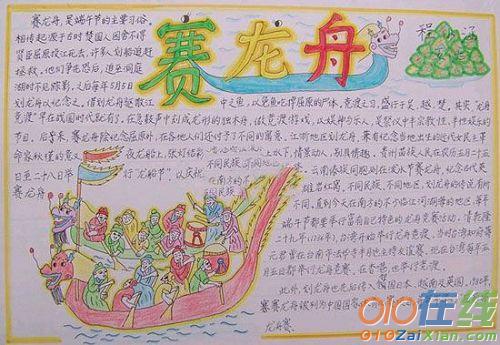 赛龙舟
程
赛龙舟，是端午节的主要习俗。
相传起源于古时楚国人因舍不得
贤臣屈原投江死去，许多人划船追赶
拯救。他们争先恐后，追至洞庭
湖时不见踪影，之后每年5月5日
划龙舟以纪念之。借划龙舟驱散江
中之鱼，以免鱼吃掉屈原的尸体。竞渡之习，盛行于吴、越、楚。其实，龙舟
竞渡”早在战国时代就有了。在急鼓声中划成龙形的独木舟，做竞渡游戏，以娱神与乐人，是祭仪中半宗教性、半娱乐的
节目。后旨来，赛龙舟除纪念屈原外，在各地人们还付予了不同的寓意。江浙地区划龙舟，兼有纪念当地出生的近代女民主革
命家秋瑾的意义。
夜龙船上，张灯结彩
上水下，情景动人，别具情趣。贵州苗族人民在农历五月二十五
日至二十八日举
行“龙船节”，以庆祝
云南傣族同胞则在泼水节赛龙舟，纪念古代英
赛龙舟
雄岩红窝。不同民族、不同地区，划龙舟的传说有所
不同。直到今天在南方的不少临江河湖海的地区，每年
端午节都要举行富有自己特色的龙舟竞赛活动。清乾隆
二十九年（1764年），台湾开始举行龙舟竞渡。当时台湾知府蒋
元君曾在台南市法华寺半月池主持友谊赛。现在台湾每年五
月五日都举行龙舟竞赛。在香港，也举行竞渡。
此外，划龙舟也先后传入邻国日本、越南及英国。1980年，
赛龙舟被列为中国国家
龙舟赛。
010在线
010ZaiXian.com